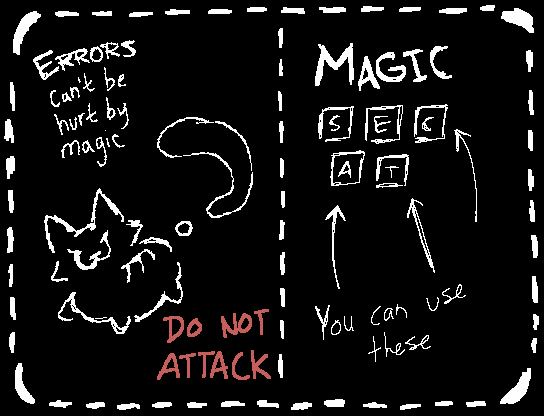 ERRORS
can't be
hurt by
magic
DO NOT
ATTACK
MAGIC
S E C
A T
You can use
these